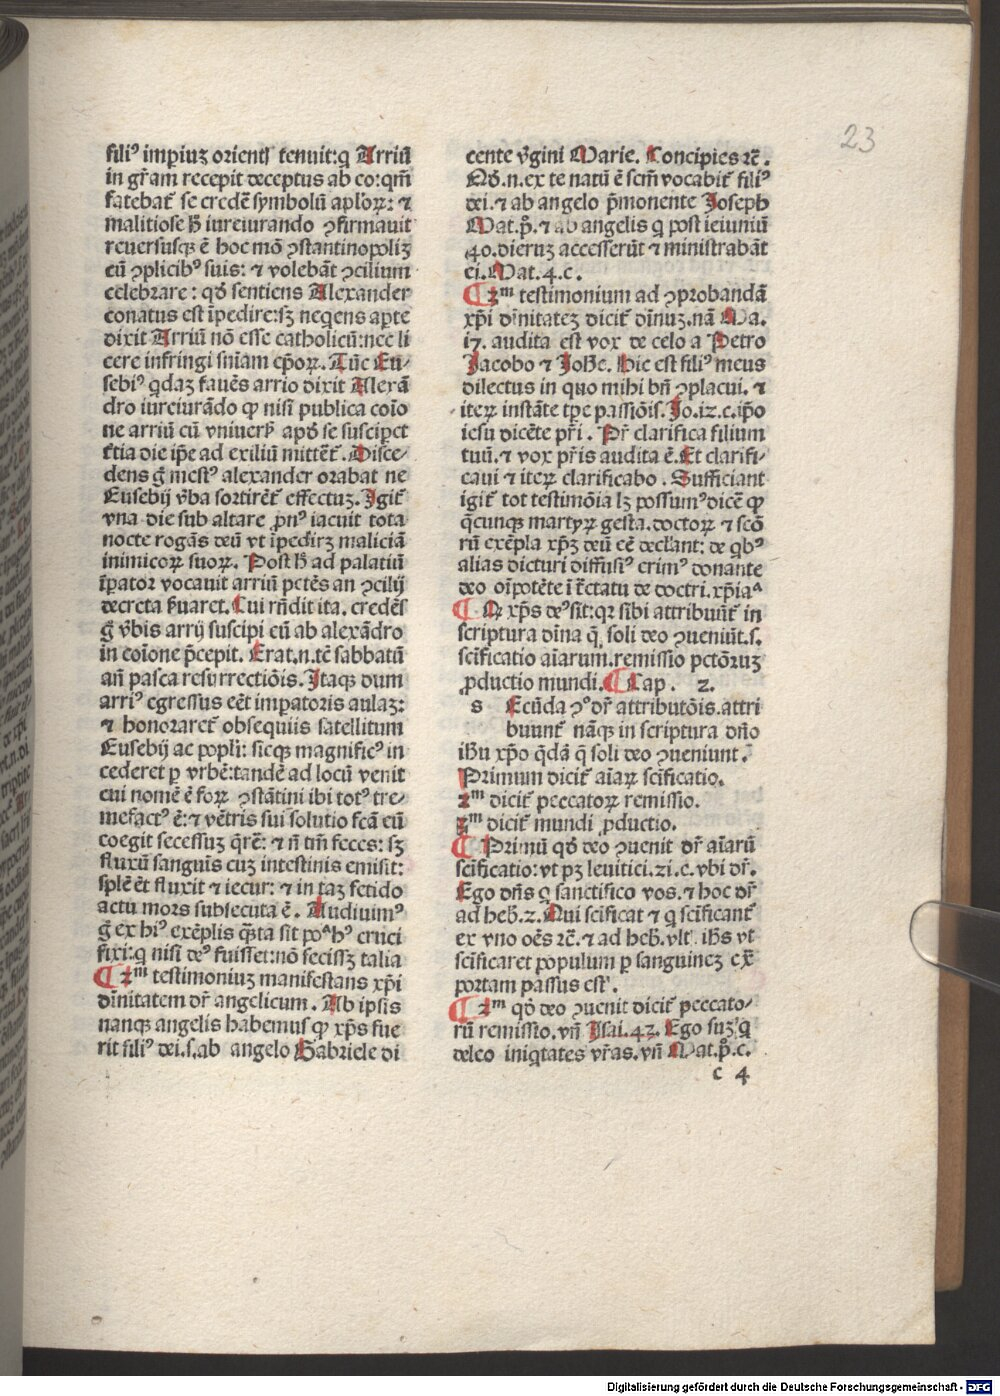 23
filiꝰ imꝑiuʒ orientꝭ tenuit:q Arriũ
in gr̃am recepit deceptus ab eo:qm̃
fatebat̃ se credẽ symbolũ apl'oꝝ: ⁊
malitiose h̃ iureiurando ꝯfirmauit
reuersusqʒ ẽ hoc mõ ꝯstantinopoliʒ
cũ ꝯplicibꝰ suis: ⁊ volebãt ꝯcilium
celebrare: qđ sentiens Alexander
conatus est ĩpedire:sʒ neqens aꝑte
dixit Arriũ nõ esse catholicũ:nec li
cere infringi sniam ep̃oꝝ. Tũc Eu-
sebiꝰ qdaʒ fauẽs arrio dixit Alexã
dro iureiurãdo ꝙ nisi publica coĩo
ne arriũ cũ vniuersꝭ apđ se susciꝑet
t̃tia die ip̃e ad exiliũ mittet̃. Disce-
dens g̃ mestꝰ alexander orabat ne
Eusebij v̾ba sortirẽt̃ effectuʒ. Igit̃
vna die sub altare ꝓnꝰ iacuit tota
nocte rogãs deũ vt ĩpedirʒ maliciã
inimicoꝝ suoꝝ. Post h̃ ad palatiũ
ĩꝑator vocauit arriũ petẽs an ꝯcilij
decreta s̾uaret. Cui rñdit ita. credẽs
g̃ v̾bis arrij suscipi eũ ab alexãdro
in coĩone p̃cepit. Erat.n.tẽ sabbatũ
añ pasca resurrectiõis. Itaqʒ dum
arriꝰ egressus eẽt imꝑatoris aulaʒ:
⁊ honoraret̃ obsequiis satellitum
Eusebij ac popl'i: sicqʒ magnificꝰ in
cederet ꝑ vrbẽ:tandẽ ad locũ venit
cui nomẽ ẽ foꝝ ꝯstãtini ibi totꝰ tre-
mefactꝰ ẽ: ⁊ vẽtris sui solutio fcã eũ
coegit secessuʒ q̃rẽ: ⁊ ñ tm̃ feces: sʒ
fluxũ sanguis cuʒ intestinis emisit:
splẽ ẽt fluxit ⁊ iecur: ⁊ in taʒ fetido
actu mors subsecuta ẽ. Audiuimꝰ
g̃ ex hiꝰ exẽplis q̃ta sit poᵃ hꝰ cruci
fixi:q nisi deꝰ fuisset:nõ fecissʒ talia
¶ 2ᵐ testimoniuʒ manifestans xp̃i
diñitatem dr̃ angelicum. Ab ipsis
nanqʒ angelis habemus ꝙ xp̃s fue
rit filiꝰ dei.s.ab angelo Gabriele di
cente v̾gini Marie. Concipies ⁊c̃.
Qđ.n.ex te natũ ẽ scm̃ vocabit̃ filiꝰ
dei.⁊ ab angelo p̃monente Joseph
Mat.p̊. ⁊ ab angelis q post ieiuniũ
40.dieruʒ accesserũt ⁊ ministrabãt
ei.Mat.4.c.
¶ 3ᵐ testimonium ad ꝯprobandã
xp̃i diñitateʒ dicit̃ diñuʒ.nã Ma.
17. audita est vox de celo a Petro
Jacobo ⁊ Johe. Hic est filiꝰ meus
dilectus in quo mihi bñ ꝯplacui. ⁊
iteꝝ instãte tpe passiõis. Jo.12.c.ip̃o
iesu dicẽte pr̃i. Pr̃ clarifica filium
tuũ.⁊ vox pr̃is audita ẽ. Et clarifi-
caui ⁊ iteꝝ clarificabo. Sufficiant
igit̃ tot testimõia lʒ possumꝰ dicẽ ꝙ
q̃cunqʒ martyꝝ gesta.doctoꝝ ⁊ scõ
rũ exẽpla xp̃ʒ deũ eẽ decl'ant: de qbꝰ
alias dicturi diffusiꝰ erimꝰ donante
deo oĩpotẽte ĩ t̃ctatu de doctri.xp̃iaᵃ
¶ Q xp̃s deꝰ sit:qꝛ sibi attribuũt̃ in
scriptura diña q̃ soli deo ꝯueniũt.s.
scĩficatio aĩarum.remissio pctõruʒ
ꝓductio mundi. ¶ Cap. 2.
s Ecũda ꝯꝰ dr̃ attributõis.attri
buunt̃ nãqʒ in scriptura dño
ihu xp̃o q̃dã q̃ soli deo ꝯueniunt.
Primum dicit̃ aĩaꝝ scĩficatio.
2ᵐ dicit̃ peccatoꝝ remissio.
3ᵐ dicit̃ mundi ꝓductio.
¶ Primũ qđ deo ꝯuenit dr̃ aĩarũ
scĩficatio:vt pʒ leuitici.21.c.vbi dr̃.
Ego dñs q sanctifico vos.⁊ hoc dr̃
ad heb̃.2. Qui scĩficat ⁊ q scĩficant̃
ex vno oẽs ⁊c̃.⁊ ad heb̃.vlt̃. ihs vt
scĩficaret populum ꝑ sanguineʒ ex̃
portam passus est.
¶ 2ᵐ qđ deo ꝯuenit dicit̃ peccato-
rũ remissio.vñ Isai.43. Ego suʒ q
deleo iniqtates vr̃as.vñ Mat.p̊.c.
c 4
Digitalisierung gefördert durch die Deutsche Forschungsgemeinschaft - DFG